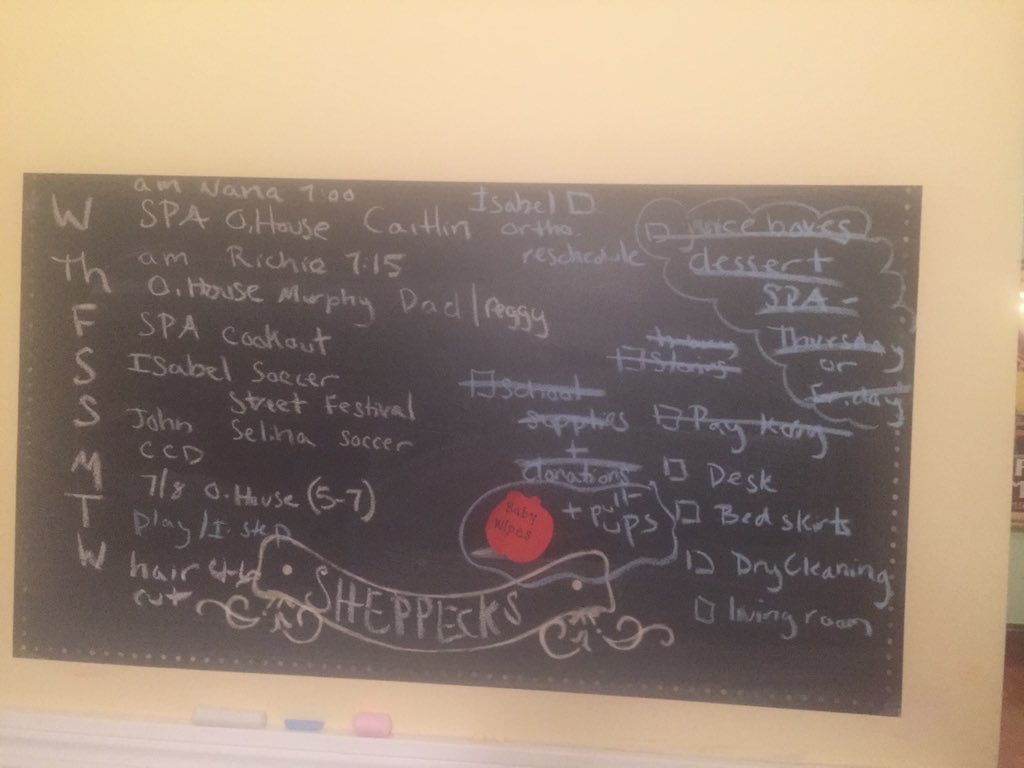 am Nana 7:00
W SPA O.House Caitlin
Th am Richie 7:15
O.House Murphy Dad/Peggy
F SPA Cookout
S Isabel Soccer
Street Festival
S John Selina soccer
CCD
M 7/8 O.House (5-7)
T Play/I.
W hair
cut
Isabel D
ortho.
reschedule
juice boxes
dessert
SPA -
Thursday
or
Friday
School
supplies
+
donations
+ pull-
ups
Baby
Wipes
Pay
Desk
Bed skirts
Dry Cleaning
living room
SHEPPECKS